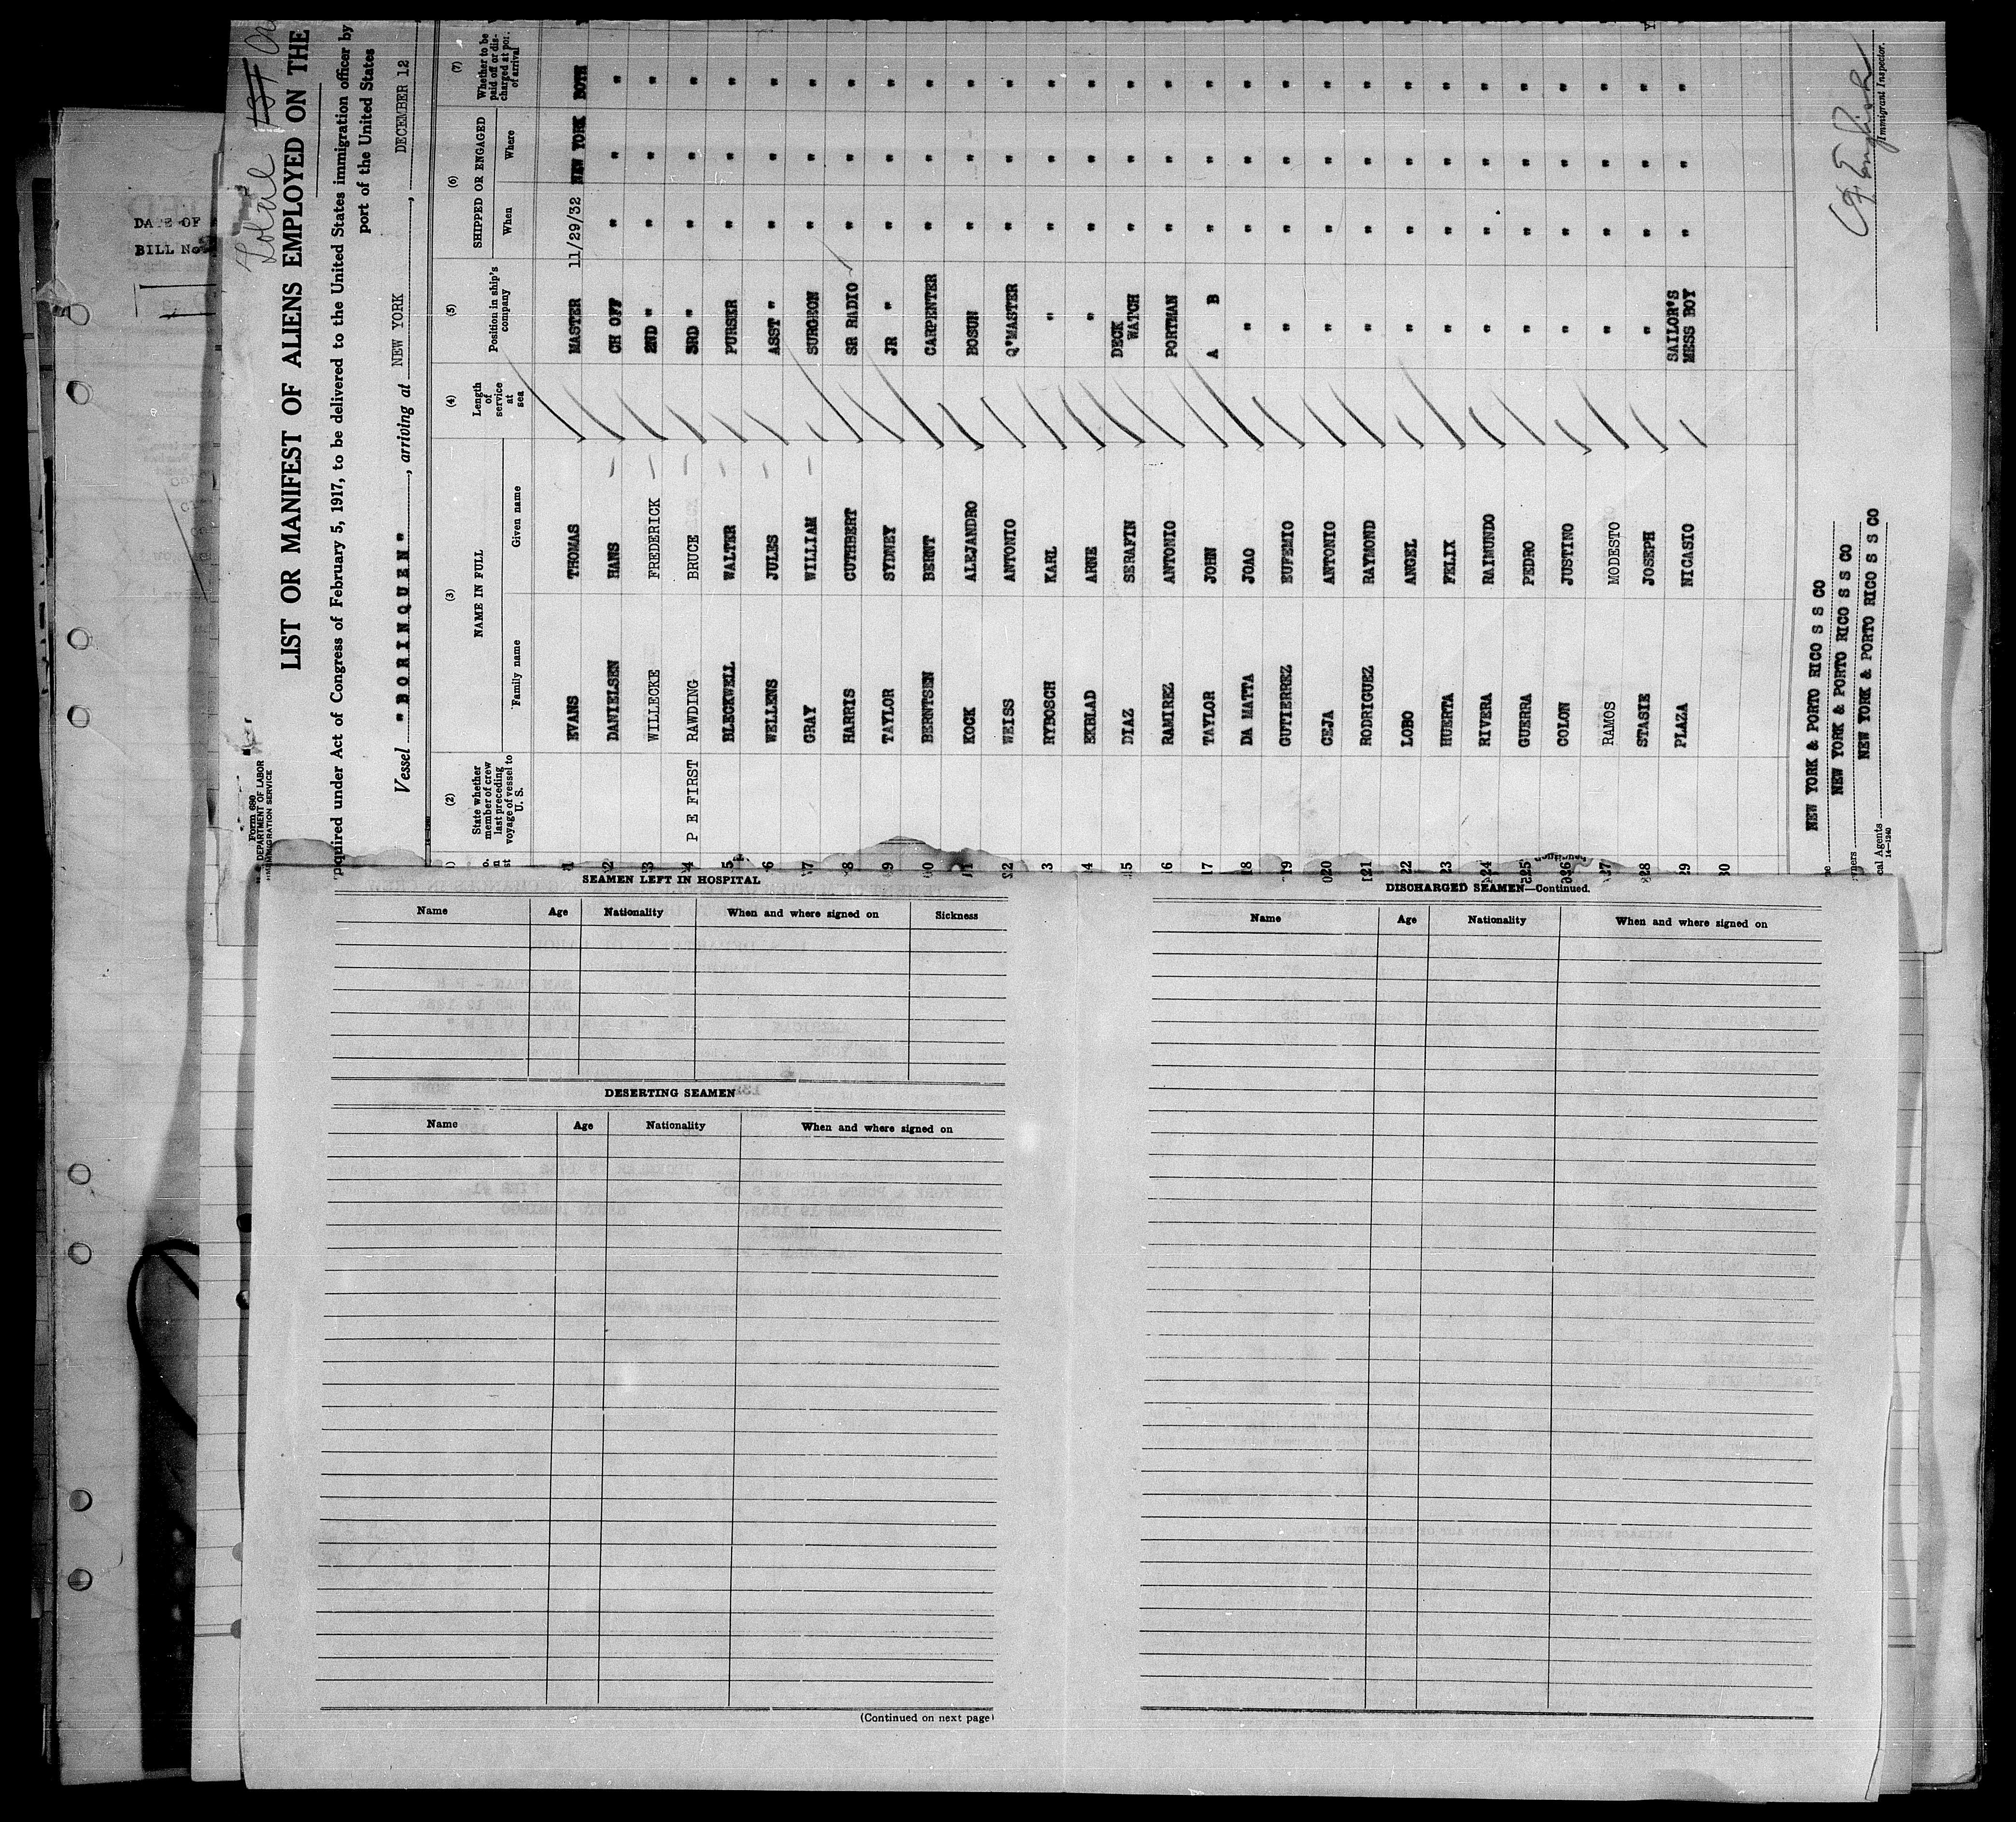 DATE OF
BILL No
Local
Form 680
DEPARTMENT OF LABOR
IMMIGRATION SERVICE
LIST OR MANIFEST OF ALIENS EMPLOYED ON THE
quired under Act of Congress of February 5, 1917, to be delivered to the United States immigration officer by
port of the United States
Vessel "BORINQUEN", arriving at NEW YORK, DECEMBER 12
(2) (3) (4) (5) (6) (7)
State whether member of crew last preceding voyage of vessel to U. S.
NAME IN FULL
Family name Given name
Length of service at sea
Position in ship's company
SHIPPED OR ENGAGED
When Where
Whether to be paid off or discharged at port of arrival
1 EVANS THOMAS MASTER 11/29/32 NEW YORK BOTH
2 DANIELSEN HANS CH OFF " " "
3 WILLECKE FREDERICK 2ND " " " "
4 P E FIRST RAWDING BRUCE 3RD " " " "
5 BLECKWELL WALTER PURSER " " "
6 WELLENS JULES ASST " " " "
7 GRAY WILLIAM SURGEON " " "
8 HARRIS CUTHBERT SR RADIO " " "
9 TAYLOR SYDNEY JR " " " "
10 BERNTSEN BERNT CARPENTER " " "
11 KOCK ALEJANDRO BOSUN " " "
12 WEISS ANTONIO Q'MASTER " " "
13 RYBOSCH KARL " " " "
14 EKBLAD ARNE " " " "
15 DIAZ SERAFIN DECK WATCH " " "
16 RAMIREZ ANTONIO PORTMAN " " "
17 TAYLOR JOHN A B " " "
18 DA MATTA JOAO " " " "
19 GUTIERREZ EUFEMIO " " " "
20 CEJA ANTONIO " " " "
21 RODRIGUEZ RAYMOND " " " "
22 LOBO ANGEL " " " "
23 HUERTA FELIX " " " "
24 RIVERA RAIMUNDO " " " "
25 GUERRA PEDRO " " " "
26 COLON JUSTINO " " " "
27 RAMOS MODESTO " " " "
28 STASIE JOSEPH " " " "
29 PLAZA NICASIO SAILOR'S MESS BOY " " "
30
NEW YORK & PORTO RICO S S CO
NEW YORK & PORTO RICO S S CO
NEW YORK & PORTO RICO S S CO
cal Agents
14—1240
Immigrant Inspector.
SEAMEN LEFT IN HOSPITAL
Name Age Nationality When and where signed on Sickness
DESERTING SEAMEN
Name Age Nationality When and where signed on
(Continued on next page)
DISCHARGED SEAMEN—Continued.
Name Age Nationality When and where signed on